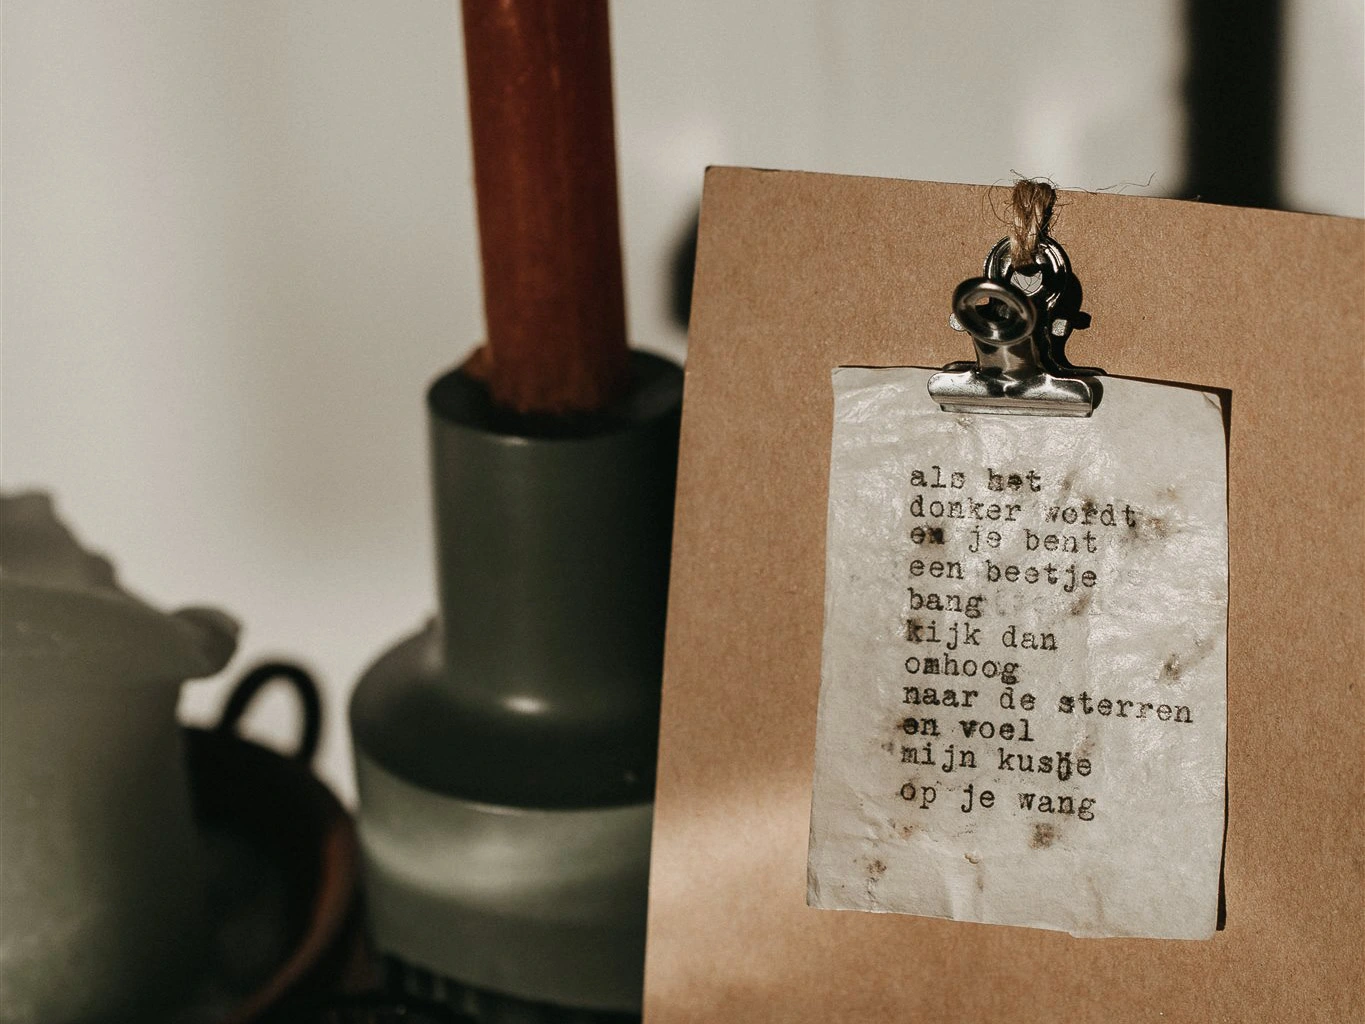 als het
donker wordt
en je bent
een beetje
bang
kijk dan
omhoog
naar de sterren
en voel
mijn kusje
op je wang